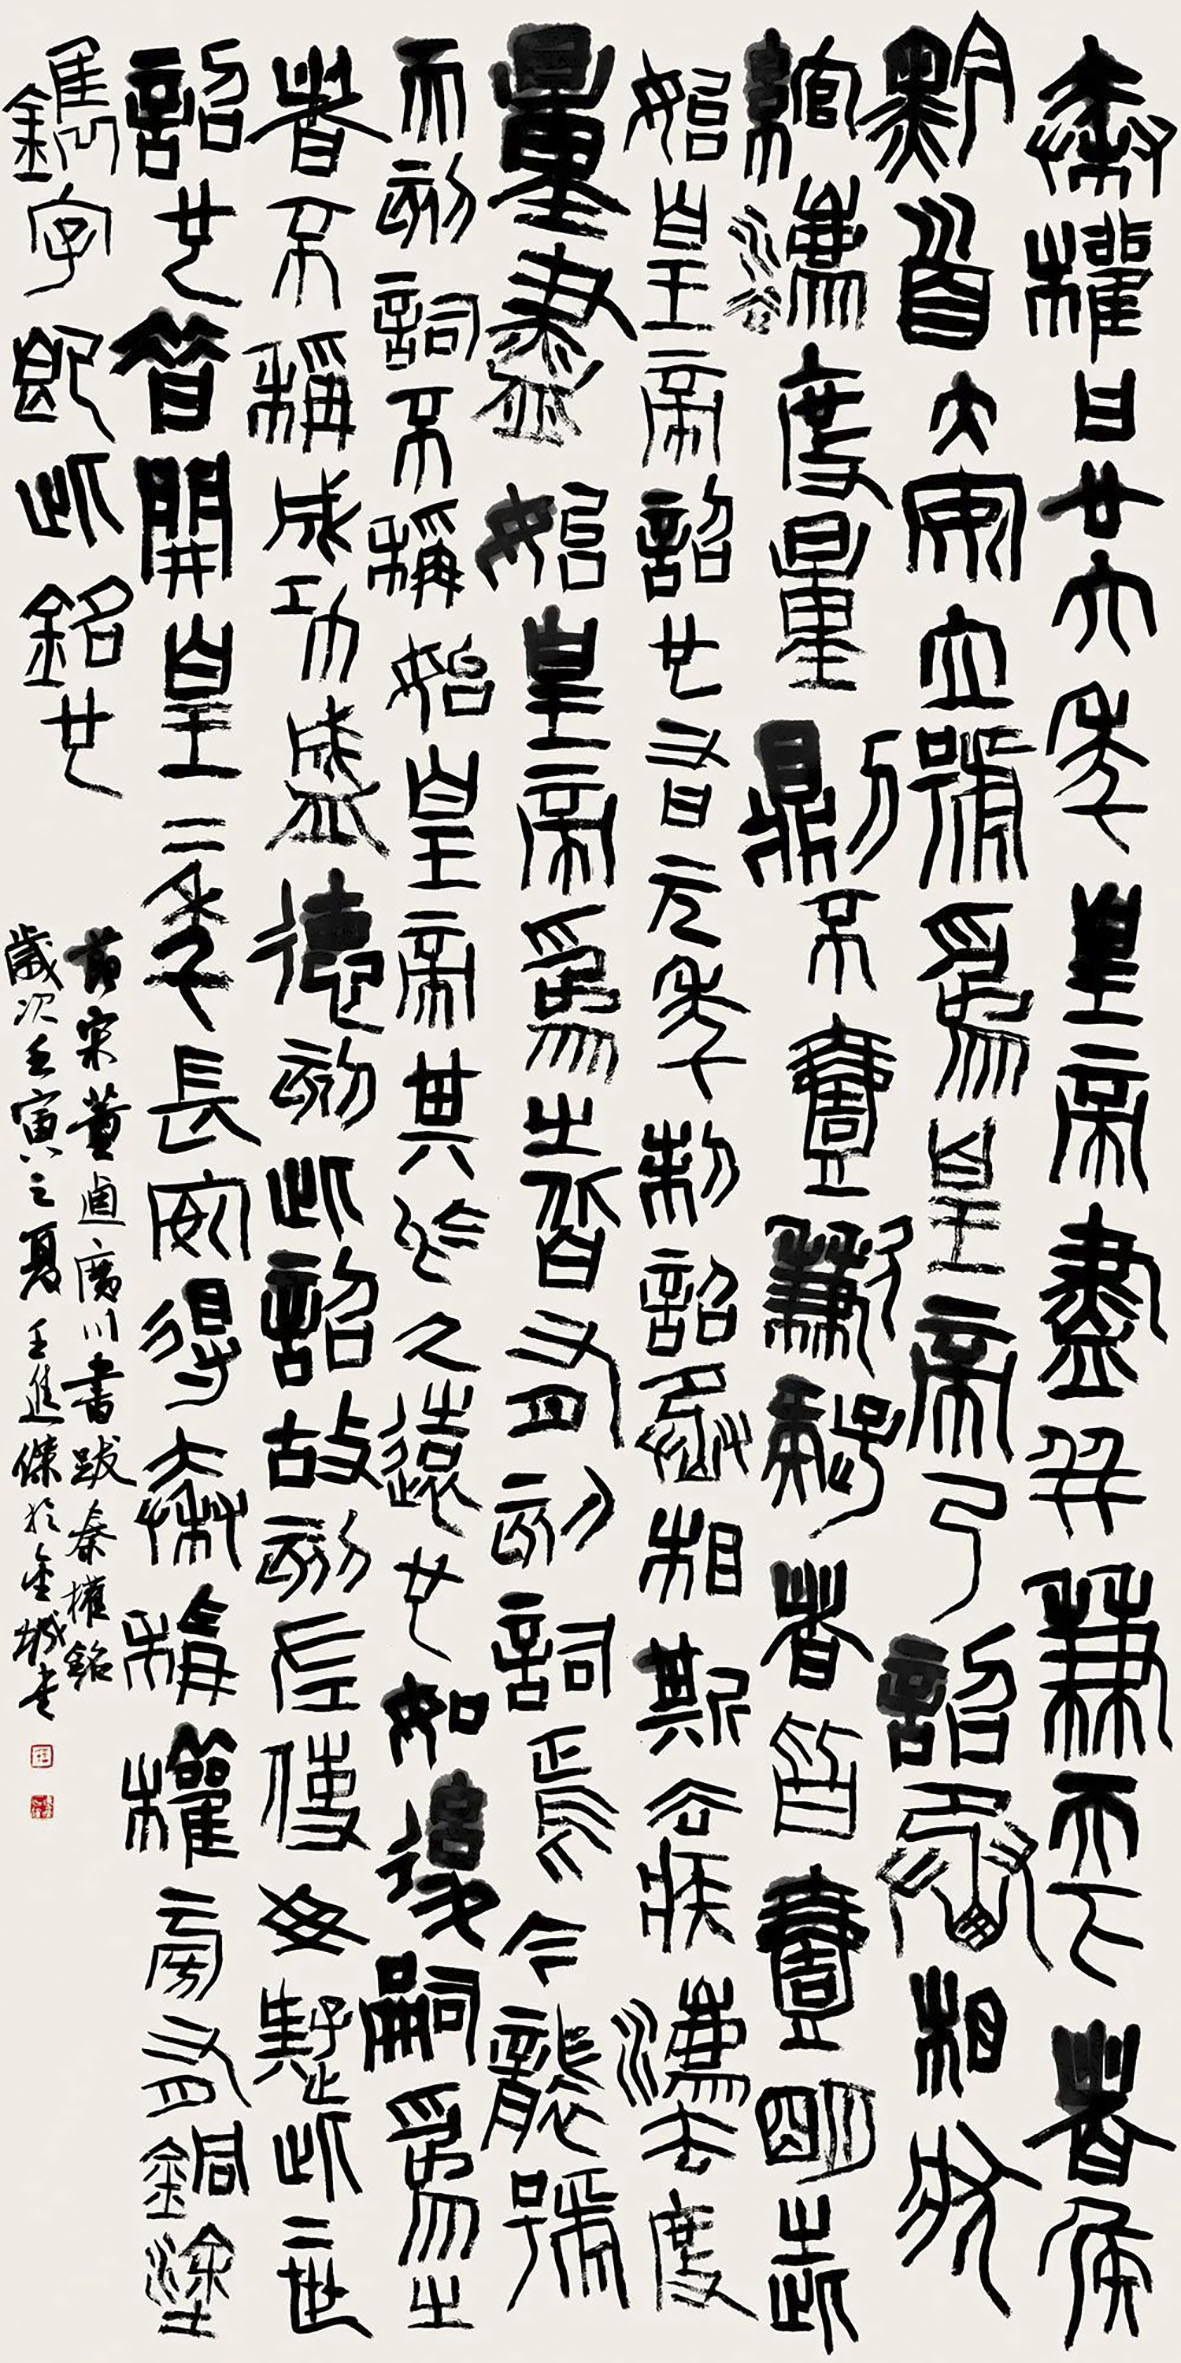 秦權曰廿六年皇帝盡并兼天下者侯
黔首大安立號爲皇帝乃詔丞相狀
綰灋度量則不壹歉疑者皆壹明之此
始皇帝詔也又曰元年制詔丞相斯去疾灋度
量盡始皇帝爲之皆有刻詞焉今襲號
而刻詞不稱始皇帝其於久遠也如後嗣爲之
者不稱成功盛德刻此詔故刻左使毋疑此二世
詔也昔開皇二年長安得秦稱權旁有銅塗
鐫字即此銘也
節宋董逌廣川書跋秦權銘
歲次壬寅之夏王進傑於金城書